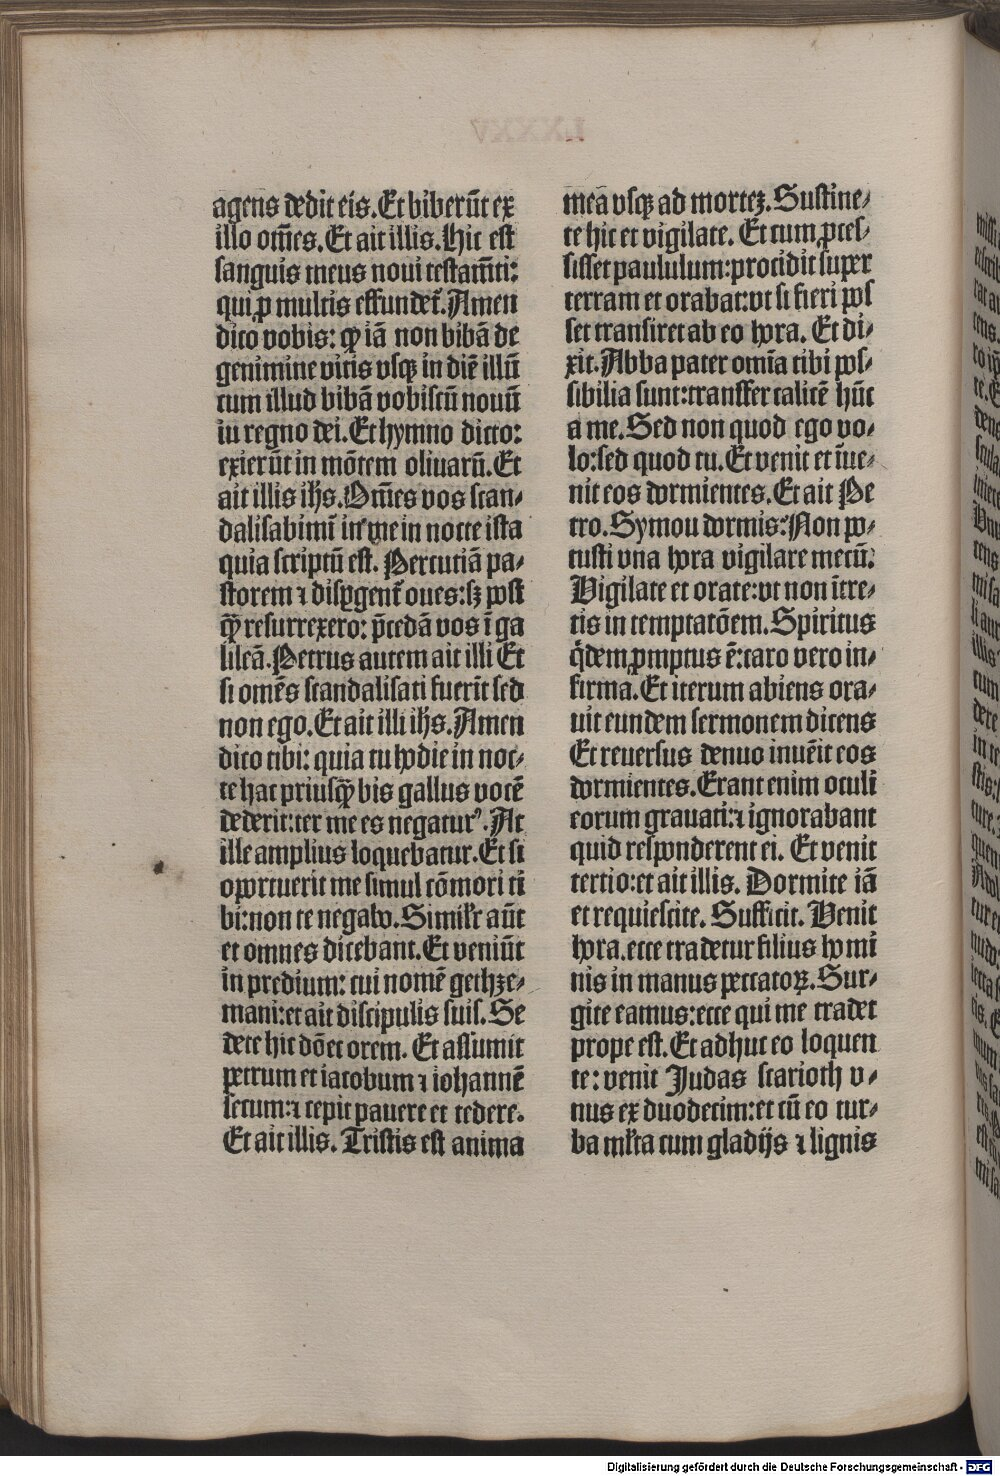 agens dedit eis. Et biberūt ex
illo om̄es. Et ait illis. Hic est
sanguis meus noui testam̄ti:
qui ꝓ multis effundet̄. Amen
dico vobis: ꝙ iā non bibā de
genimine vitis vsqꝫ in diē illū
cum illud bibā vobiscū nouū
in regno dei. Et hymno dicto:
exierūt in mōtem oliuarū. Et
ait illis ihs̄. Om̄es vos scan⸗
dalisabimī in me in nocte ista
quia scriptū est. Percutiā pa⸗
storem ⁊ disꝑgent̄ oues: sꝫ post
ꝙ̄ resurrexero: p̄cedā vos ī ga
lileā. Petrus autem ait illi Et
si omēs scandalisati fuerīt sed
non ego. Et ait illi ihs̄. Amen
dico tibi: quia tu hodie in noc⸗
te hac priusꝙ̄ bis gallus vocē
dederit: ter me es negaturꝰ. At
ille amplius loquebatur. Et si
oportuerit me simul cōmori ti
bi: non te negabo. Simil̄r aūt
et omnes dicebant. Et veniūt
in predium: cui nomē gethze⸗
mani: et ait discipulis suis. Se
dete hic dōec orem. Et assumit
petrum et iacobum ⁊ iohannē
secum: ⁊ cepit pauere et tedere.
Et ait illis. Tristis est anima
mea vsqꝫ ad morteꝫ. Sustine⸗
te hic et vigilate. Et cum ꝓces⸗
sisset paululum: procidit super
terram et orabat: vt si fieri pos
set transiret ab eo hora. Et di⸗
xit. Abba pater omīa tibi pos⸗
sibilia sunt: transfer calicē hūc
a me. Sed non quod ego vo⸗
lo: sed quod tu. Et venit et īue⸗
nit eos dormientes. Et ait Pe
tro. Symon dormis? Non po⸗
tusti vna hora vigilare mecū?
Vigilate et orate: vt non ītre⸗
tis in temptatōem. Spiritus
q̇dem ꝓmptus ē: caro vero in⸗
firma. Et iterum abiens ora⸗
uit eundem sermonem dicens
Et reuersus denuo inuēit eos
dormientes. Erant enim oculi
eorum grauati: ⁊ ignorabant
quid responderent ei. Et venit
tertio: et ait illis. Dormite iā
et requiescite. Sufficit. Venit
hora. ecce tradetur filius homi
nis in manus peccatoꝝ. Sur⸗
gite eamus: ecce qui me tradet
prope est. Et adhuc eo loquen
te: venit Judas scarioth v⸗
nus ex duodecim: et cū eo tur⸗
ba ml̄ta cum gladijs ⁊ lignis
Digitalisierung gefördert durch die Deutsche Forschungsgemeinschaft - DFG